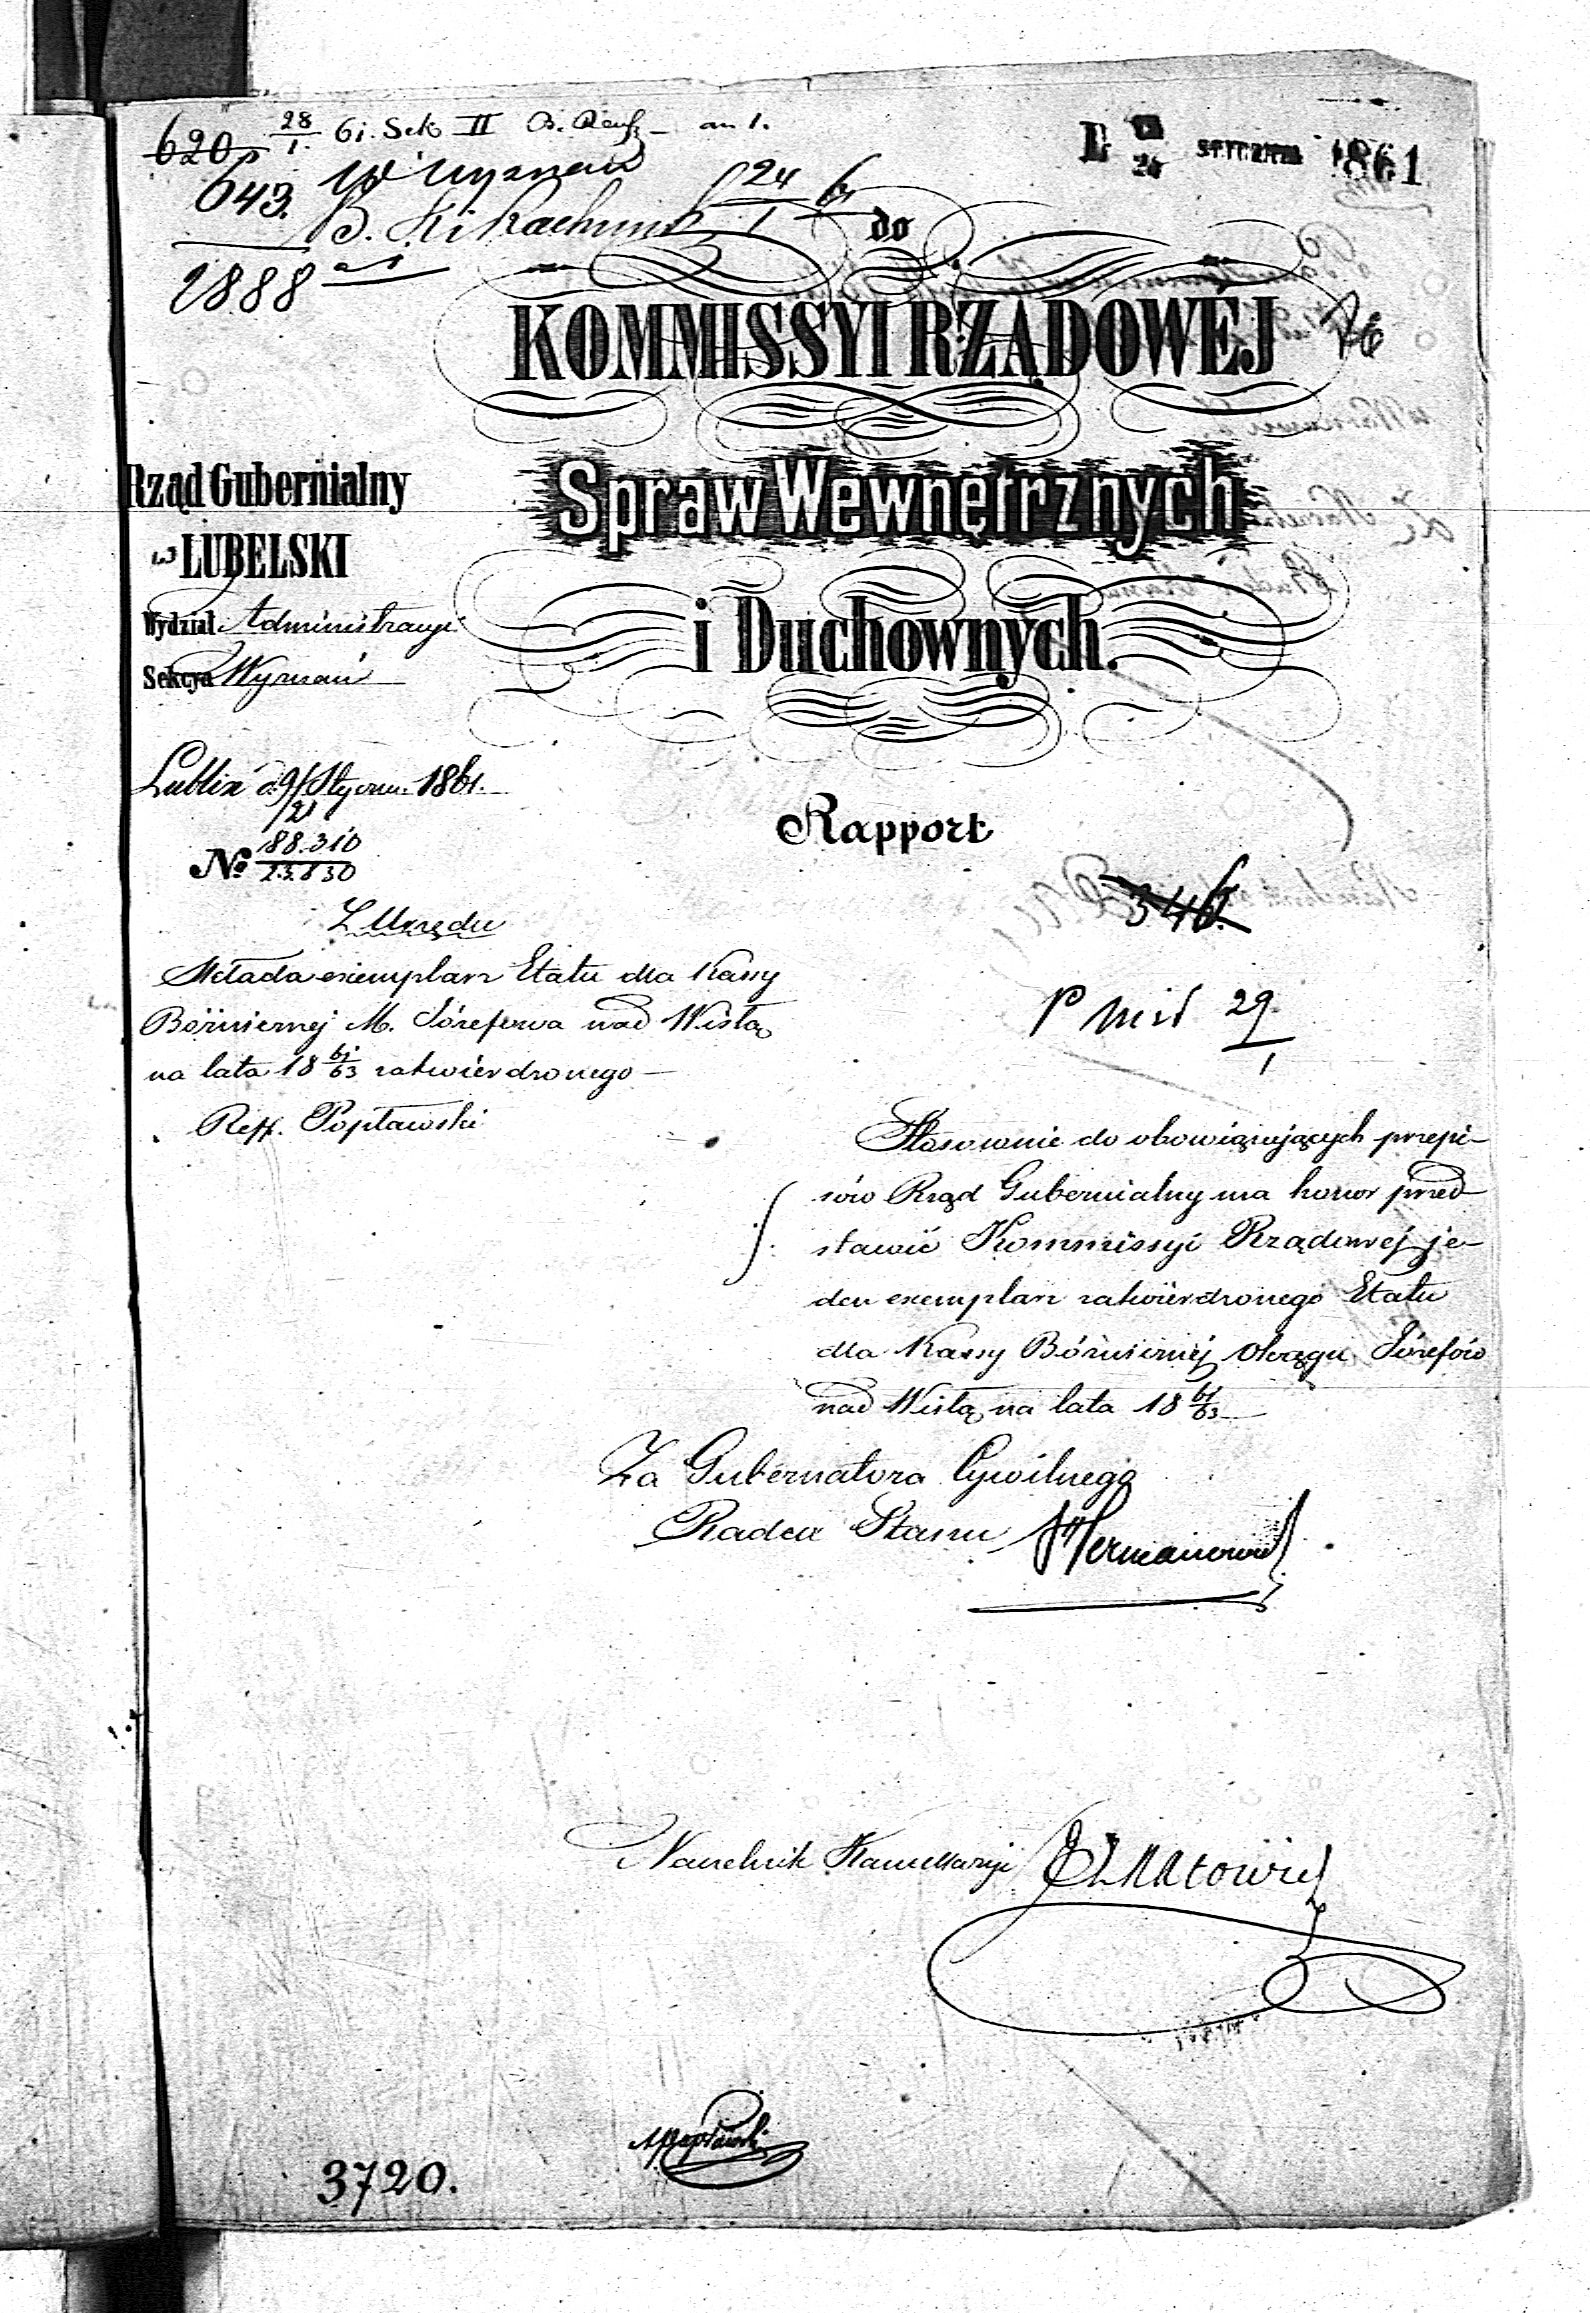 620 28/1 61. Sek II
643. W Wyznań
B. 24/1 61
2888
D. 12/24 STYCZNIA 1861
do
KOMMISSYI RZĄDOWEJ
Spraw Wewnętrznych
i Duchownych.
Rząd Gubernialny
LUBELSKI
Wydział Administracyi
Sekcya Wyznań
Lublin d. 9/21 Styczn. 1861.
№ 88.310/23.830
Rapport
346.
Z Urzędu
Składa exemplarz Etatu dla Kassy
Bóżnicznej M. Józefowa nad Wisłą
na lata 18 61/63 zatwierdzonego
Reff. Popławski
29/1
Stosownie do obowiązujących przepi-
sów Rząd Gubernialny ma honor przed-
stawić Kommissyi Rządowej je-
den exemplarz zatwierdzonego Etatu
dla Kassy Bóżnicznej Okręgu Józefów
nad Wisłą na lata 18 61/63
Za Gubernatora Cywilnego
Radca Stanu Hermanowicz
Naczelnik Kancellaryi
Popławski
3720.